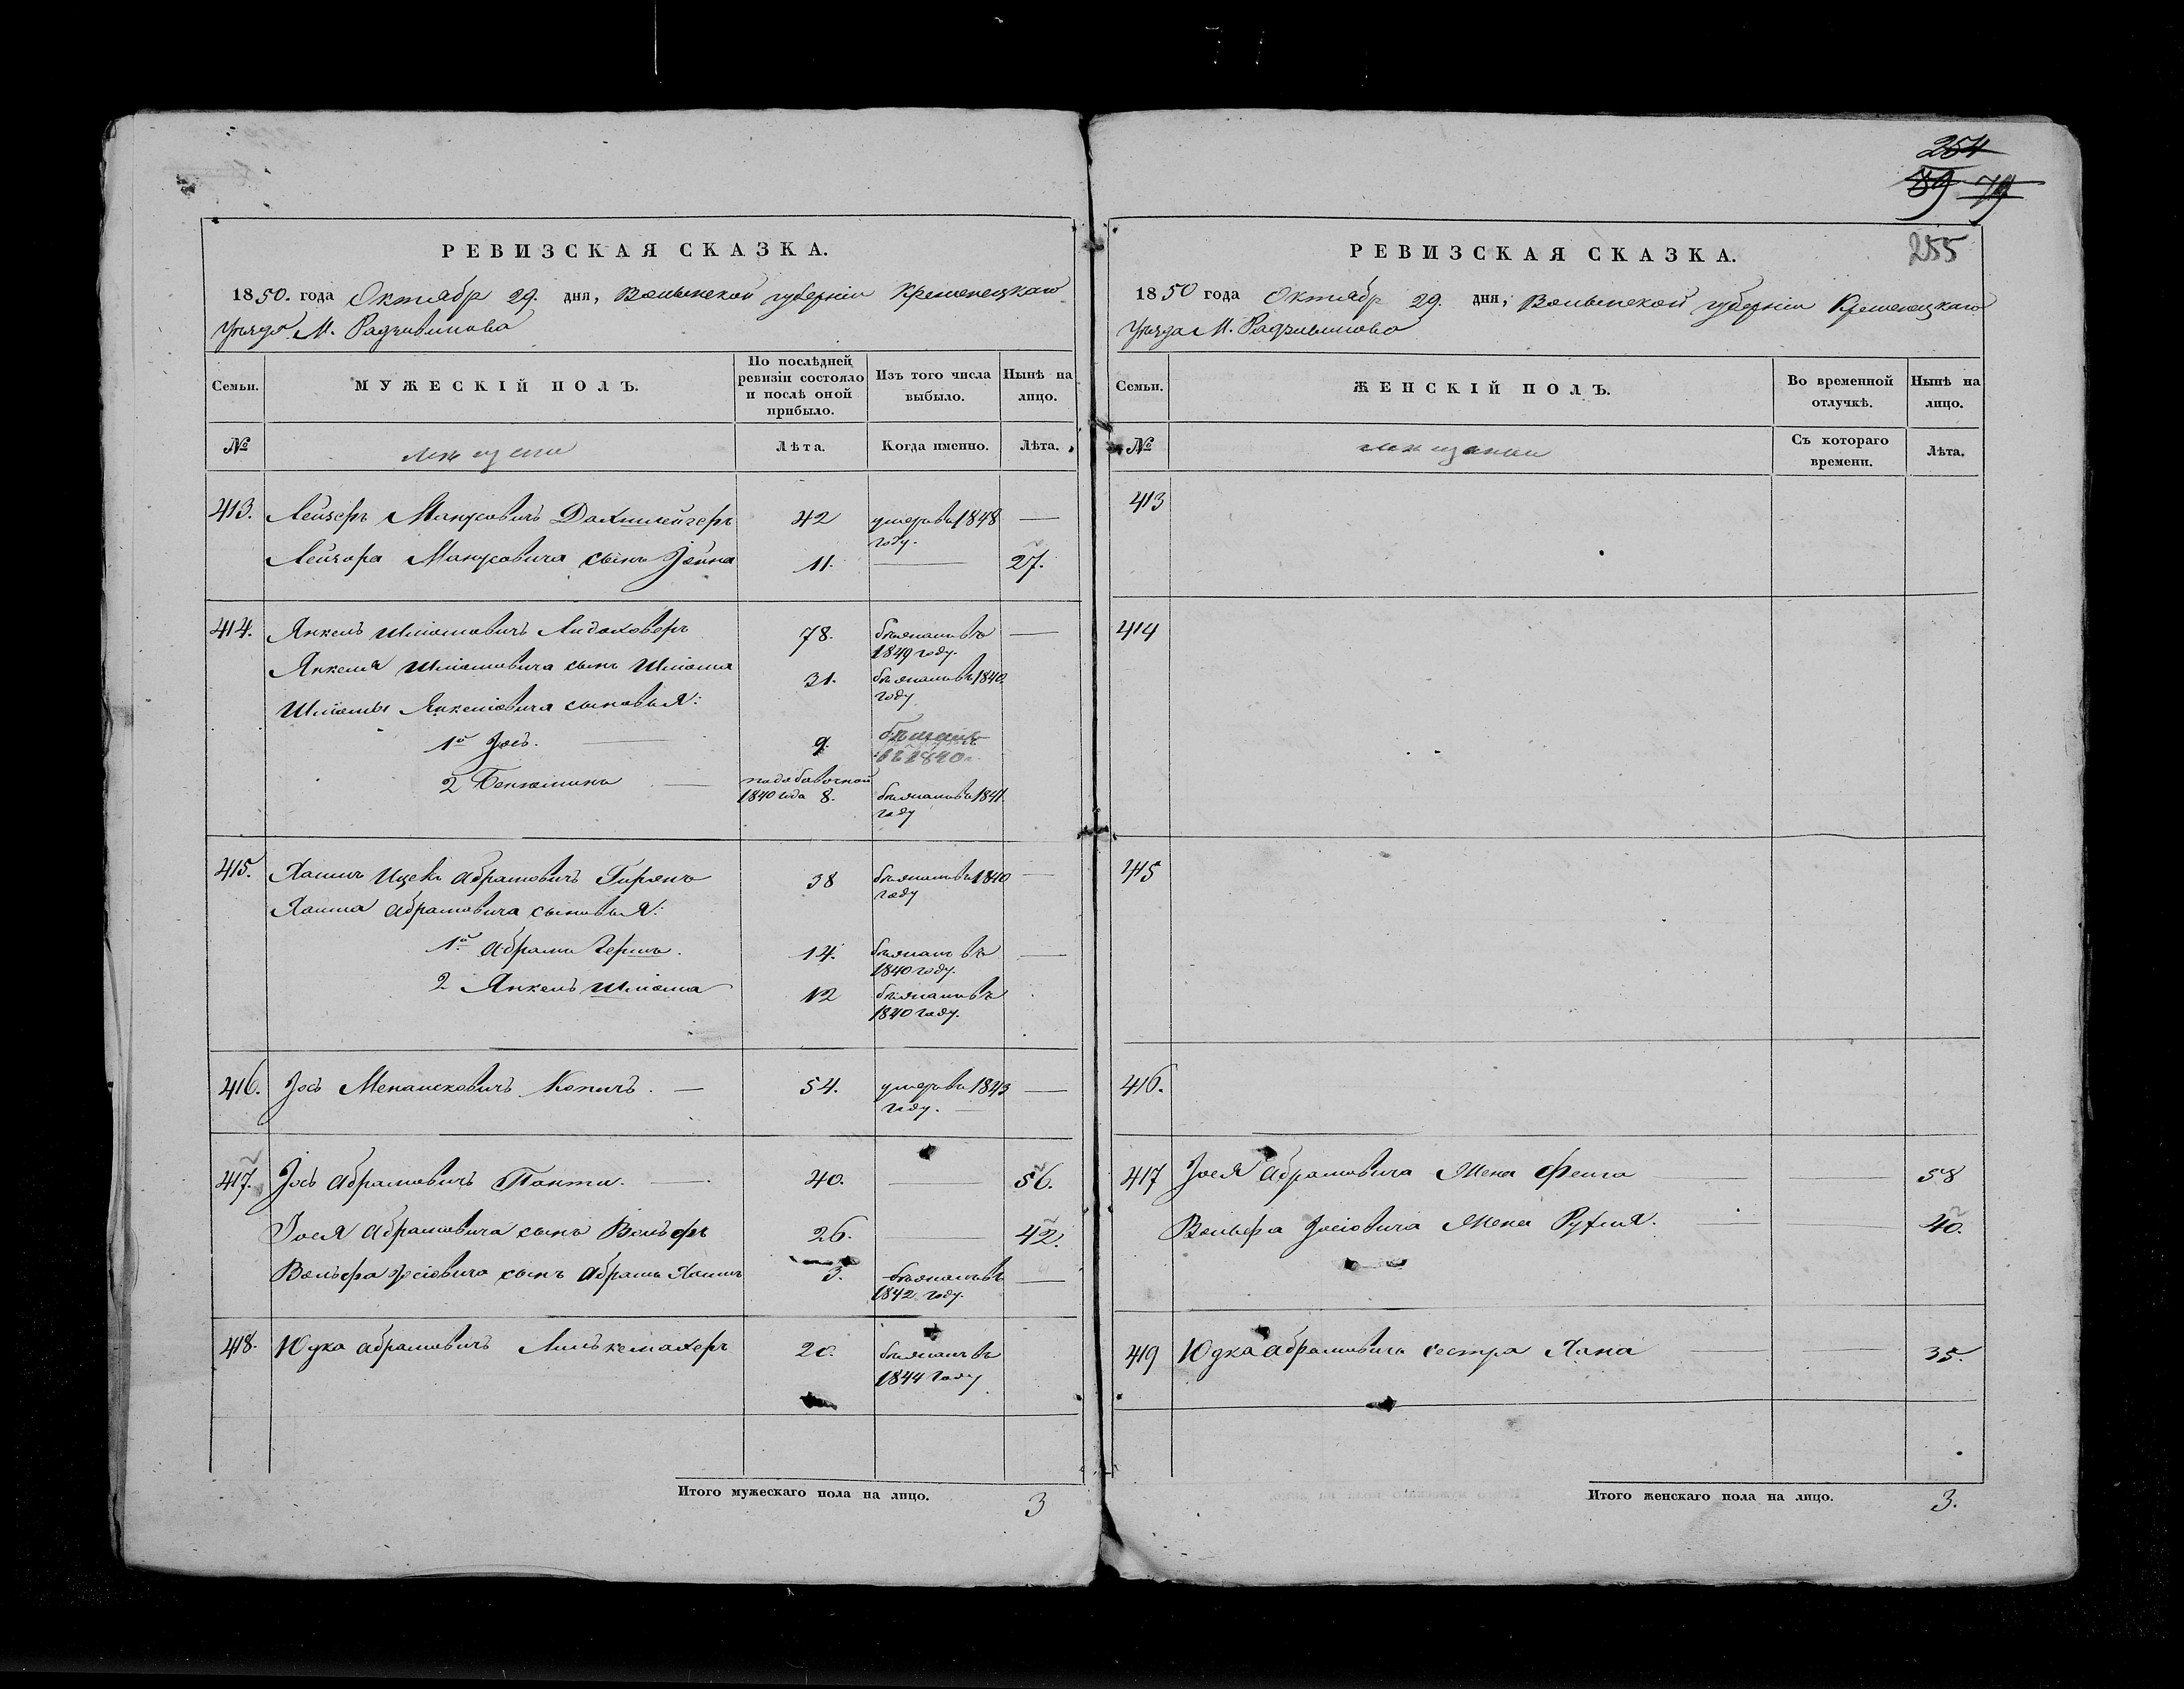 РЕВИЗСКАЯ СКАЗКА.
1850. года Октябр 29. дня, Волынской губерніи Кременецкаго
Уѣзда М. Радзивилова
Семьи.
МУЖЕСКІЙ ПОЛЪ.
По послѣдней ревизіи состояло и послѣ оной прибыло.
Изъ того числа выбыло.
Нынѣ на лицо.
№
мещане
Лѣта.
Когда именно.
Лѣта.
413. Лейзеръ Манусовичъ 42 умеръ въ 1848 году. —
Лейзора Манусовича сынъ Іойна 11. — 27.
414. Янкель Шліомовичъ Лидаховеръ 78. бѣжалъ въ 1849 году. —
Янкеля Шліомовича сынъ Шліома 31. бѣжалъ въ 1840 году
Шліомы Янкеліовича сыновья:
1й Іось. — 9. бѣжалъ въ 1840 г.
2 Бенюминъ — по добавочной 1840 года 8. бѣжалъ въ 1841 году
415. Хаимъ Ицекъ Абрамовичъ 38 бѣжалъ въ 1840 году —
Хаима Абрамовича сыновья:
1й Абрамъ Гершъ. 14. бѣжалъ въ 1840 году. —
2 Янкель Шліома 12 бѣжалъ въ 1840 году.
416. Іось Менашковичъ Копичъ. — 54. умеръ въ 1843 году. —
417. Іось Абрамовичъ Панти. — 40. — 56.
Іося Абрамовича сынъ Вольфъ 26. — 42.
Вольфа Іосіовича сынъ Абрамъ Хаимъ 3. бѣжалъ въ 1842 году. —
418. Юдка Абрамовичъ 20. бѣжалъ въ 1844 году
Итого мужескаго пола на лицо. 3
254
89 79
255
РЕВИЗСКАЯ СКАЗКА.
1850 года Октябр 29. дня, Волынской губерніи Кременецкаго
Уѣзда М. Радзивилово
Семьи.
ЖЕНСКІЙ ПОЛЪ.
Во временной отлучкѣ.
Нынѣ на лицо.
№
мещанки
Съ котораго времени.
Лѣта.
413
414
415
416.
417 Іося Абрамовича Жена Фейга — — 58
Вольфа Іосіовича Жена Рухля. — — 40.
419 Юдка Абрамовича сестра Хана — — 35.
Итого женскаго пола на лицо. 3.